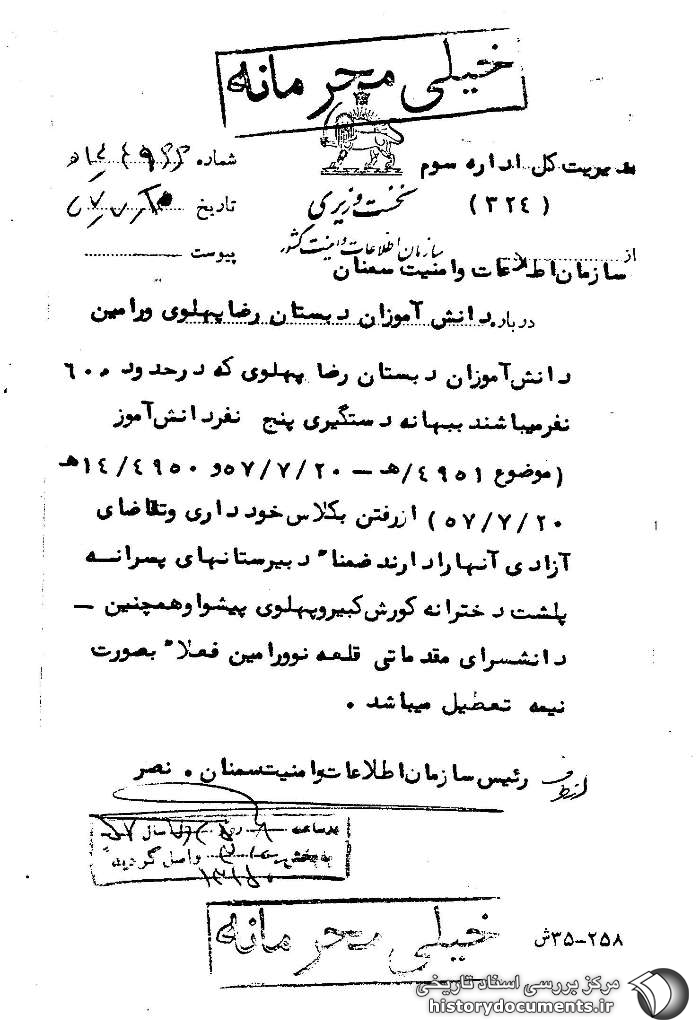 خیلی محرمانه
مدیریت کل اداره سوم
شماره
(۳۲٤)
نخست وزیری
تاریخ
سازمان اطلاعات و امنیت کشور
پیوست
از
سازمان اطلاعات و امنیت سمنان
درباره دانش آموزان دبستان رضا پهلوی ورامین
دانش آموزان دبستان رضا پهلوی که در حدود ٦۰۰
نفر میباشند ببهانه دستگیری پنج نفر دانش آموز
(موضوع ٤۹٥۱/هـ – ٥۷/۷/۲۰ و ۱٤/٤۹٥۰هـ
٥۷/۷/۲۰) از رفتن بکلاس خودداری و تقاضای
آزادی آنها را دارند ضمنا" دبیرستانهای پسرانه
پلشت دخترانه کورش کبیر و پهلوی پیشوا و همچنین –
دانشسرای مقدماتی قلعه نو ورامین فعلا" بصورت
نیمه تعطیل میباشد .
رئیس سازمان اطلاعات و امنیت سمنان . نصر
از طرف
واصل گردید
خیلی محرمانه
۲۵۸-۳۵ش
مرکز بررسی اسناد تاریخی
historydocuments.ir